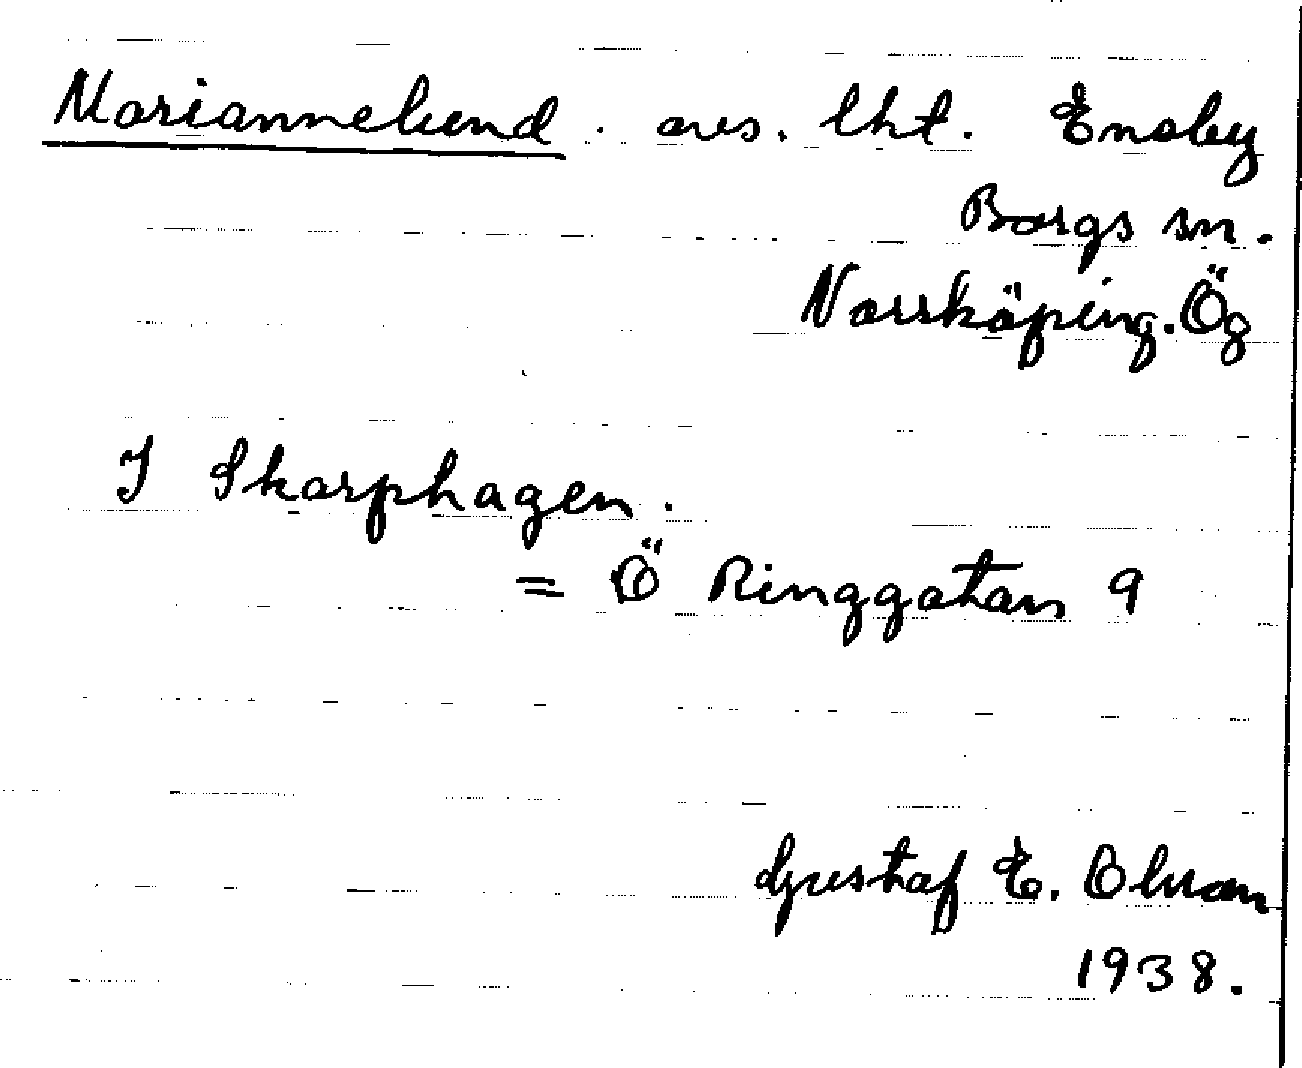 Mariannelund. avs. lht. Ensby
Borgs sn.
Norrköping. Ög
I Skarphagen.
= Ö Ringgatan 9
Gustaf E. Olsson
1938.